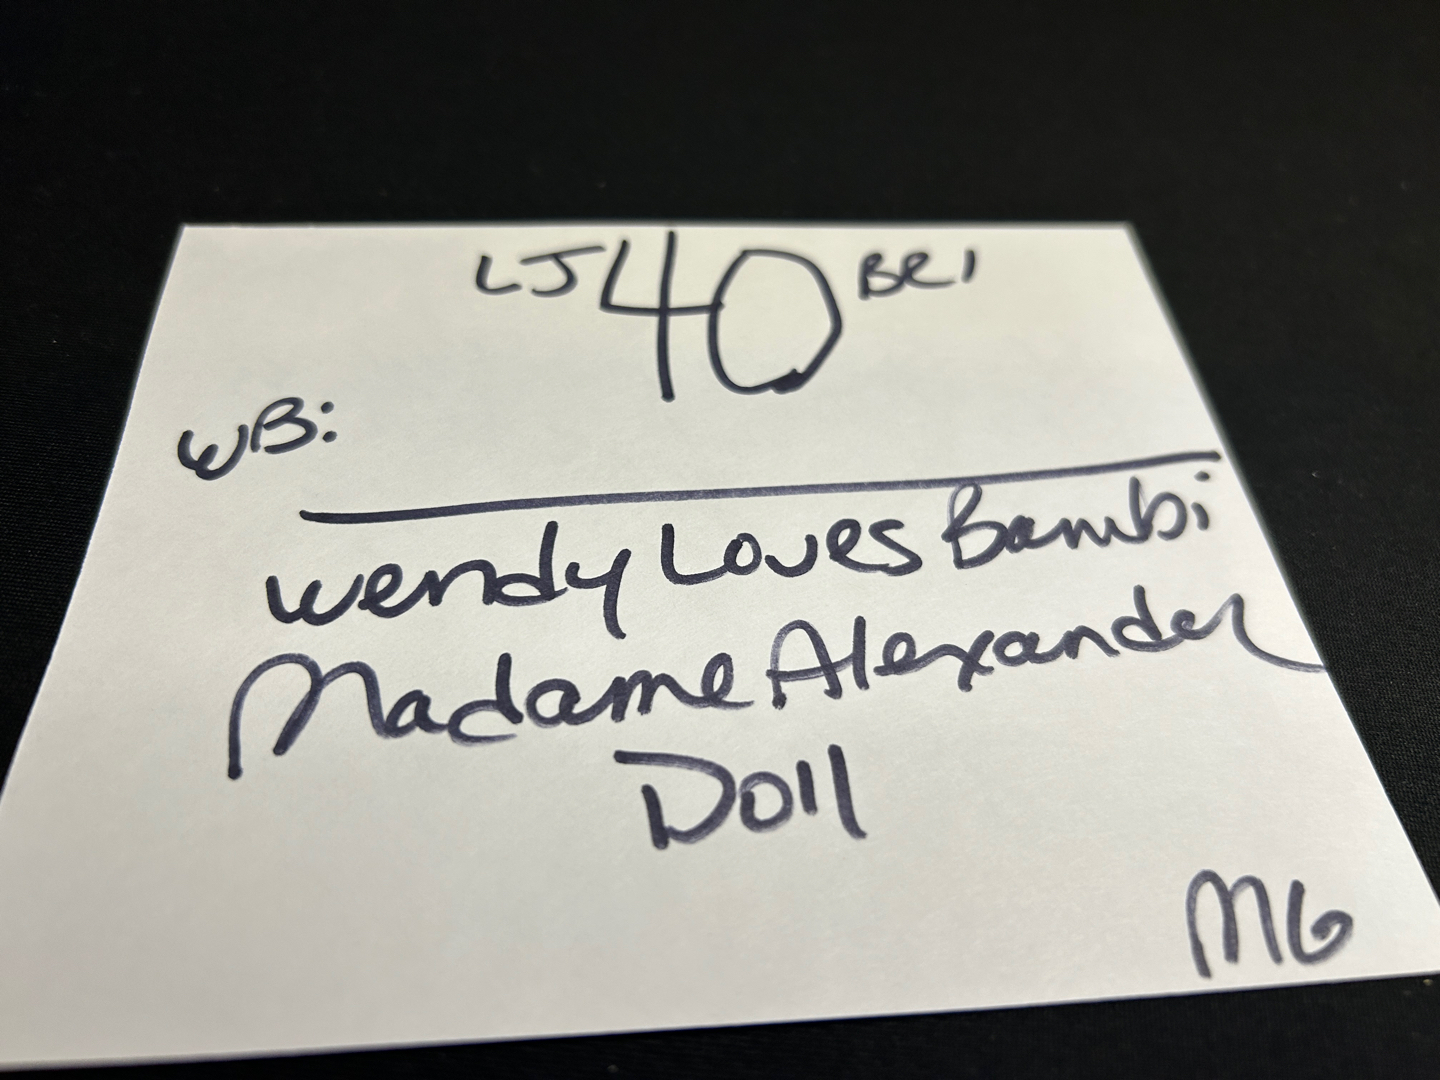 LJ 40 BR1
WB:
Wendy Loves Bambi
Madame Alexander
Doll
MG